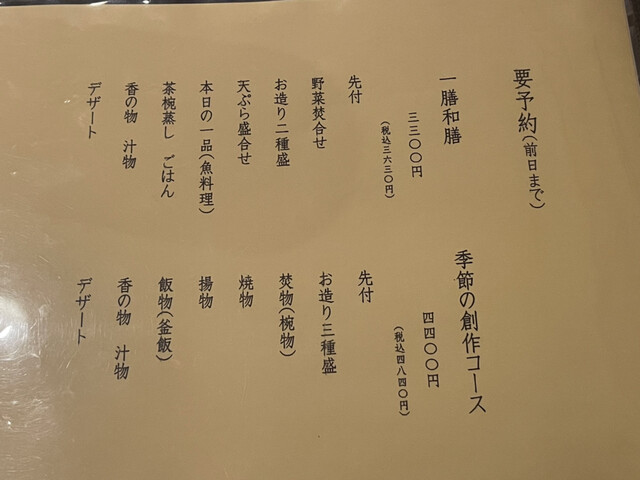 要予約(前日まで)
一膳和膳
三三〇〇円
(税込三六三〇円)
先付
野菜焚合せ
お造り二種盛
天ぷら盛合せ
本日の一品(魚料理)
茶椀蒸し ごはん
香の物 汁物
デザート
季節の創作コース
四四〇〇円
(税込四八四〇円)
先付
お造り三種盛
焚物(椀物)
焼物
揚物
飯物(釜飯)
香の物 汁物
デザート